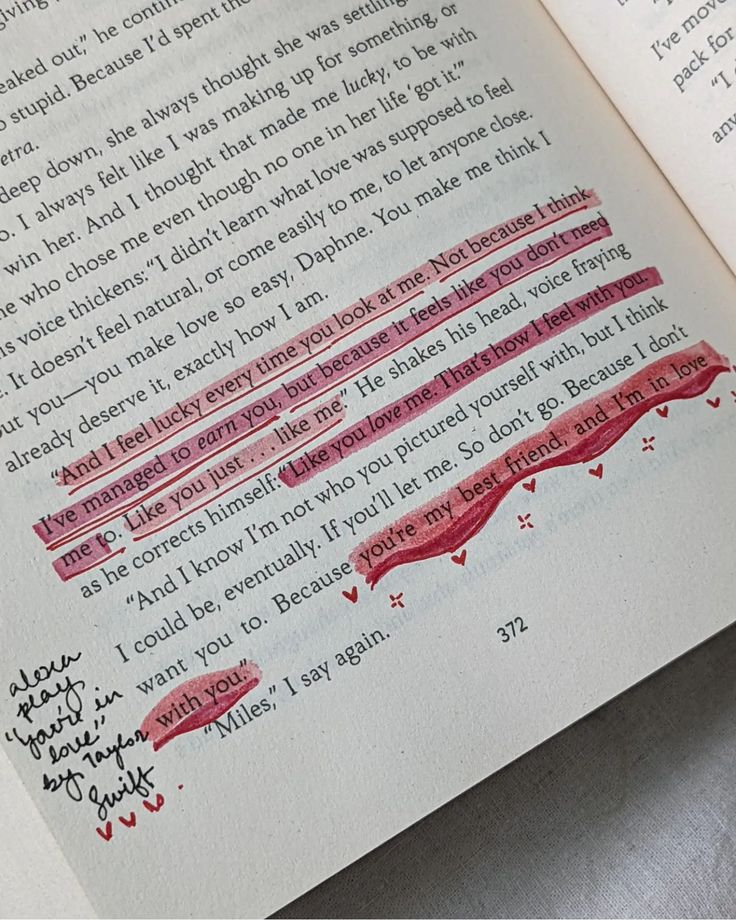 giving
eaked out," he continu
o stupid. Because I'd spent the
etra.
deep down, she always thought she was settling
o. I always felt like I was making up for something, or
win her. And I thought that made me lucky, to be with
ne who chose me even though no one in her life 'got it.'"
is voice thickens: "I didn't learn what love was supposed to feel
. It doesn't feel natural, or come easily to me, to let anyone close.
out you—you make love so easy, Daphne. You make me think I
already deserve it, exactly how I am.
"And I feel lucky every time you look at me. Not because I think
I've managed to earn you, but because it feels like you don't need
me to. Like you just . . . like me." He shakes his head, voice fraying
as he corrects himself: "Like you love me. That's how I feel with you.
"And I know I'm not who you pictured yourself with, but I think
I could be, eventually. If you'll let me. So don't go. Because I don't
want you to. Because you're my best friend, and I'm in love
with you."
"Miles," I say again.
372
alexa
play
"you're in
love"
by Taylor
Swift
I've move
pack for
"I
any